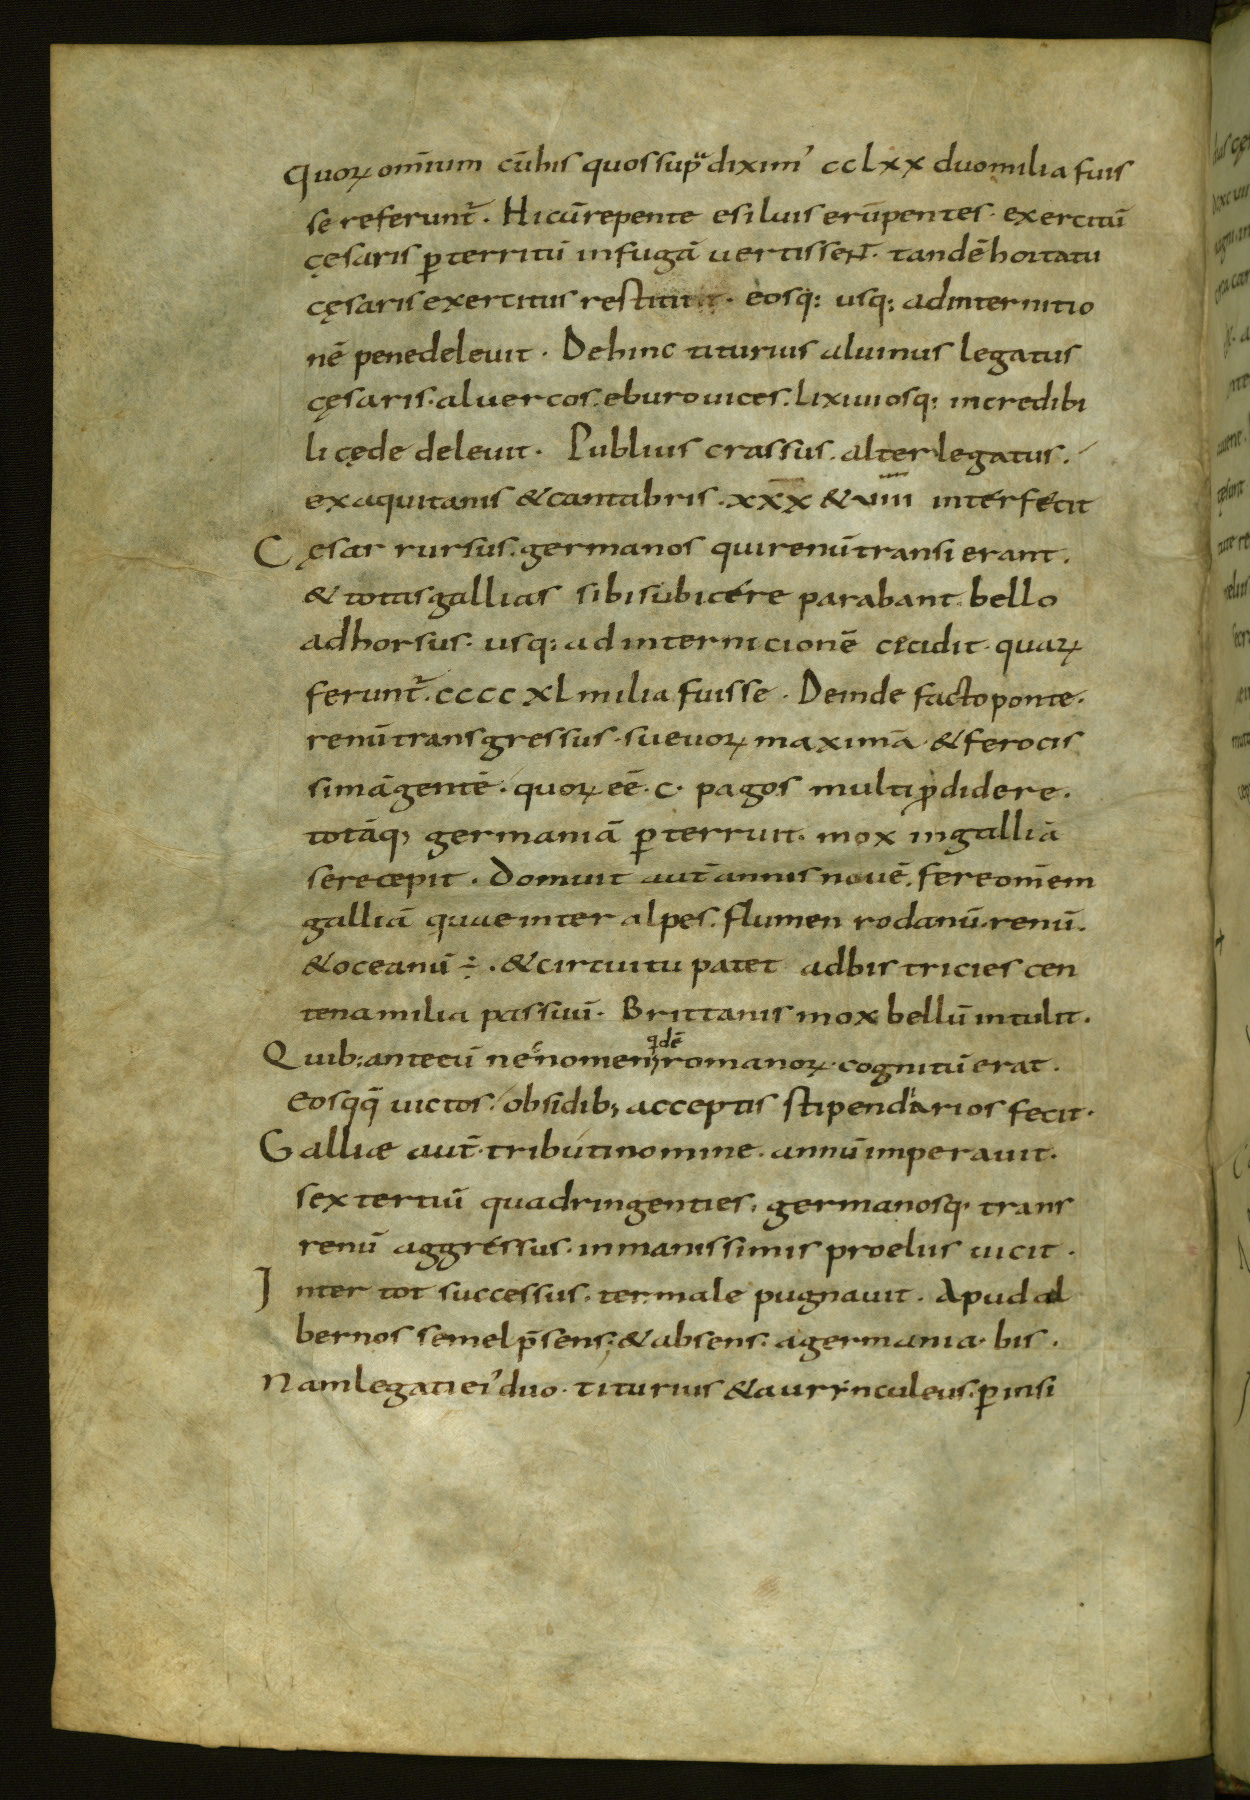 Quoꝝ omīum cū his quos supᵃ diximꝰ ccLxx duo milia fuis
se referunt̄. Hi cū repente e siluis erūpentes. exercitū
cęsaris ꝑterritū in fugā vertissent. tandē hortatu
cęsaris exercitus restitit. eosq; usq; ad internitio
nē pene deleuit. Dehinc titurius aluinus legatus
cęsaris. aluercos. eburouices. Lixuiosq; incredibi
li cęde deleuit. Publius crassus. alter legatus.
ex aquitanis & cantabris. xxx & uiii interfecit
Cęsar rursus. germanos qui renū transierant.
& totas gallias sibi subicere parabant bello
adhorsus. usq; ad internicionē cecidit. quaꝝ
ferunt̄. cccc xL milia fuisse. Deinde facto ponte.
renū transgressus. sueuoꝝ maximā & ferocis
simā gentē. quoꝝ eē. c. pagos multi ꝓdidere.
totāq; germaniā ꝑterruit. mox in galliā
se recepit. Domuit aut̄ annis nouē. fere omēm
galliā quae inter alpes. flumen rodanū. renū.
& oceanū ÷. & circuitu patet ad bis tricies cen
tena milia passuū. Brittanis mox bellū intulit.
Quib; antecū ne nomen qͥdē romanoꝝ cognitū erat.
Eosqq̄ uictos. obsidib; acceptis stipendiarios fecit.
Galliae aut̄ tributi nomine. annū imperauit.
sextertiū quadringenties. germanosq. trans
renū aggressus. inmanissimis proeliis uicit.
Inter tot successus. ter male pugnauit. Apud al
bernos semel p̄sens. & absens. a germania. bis.
Nam legati eiꝰ duo. titurius & aurunculeus. ꝑ insi